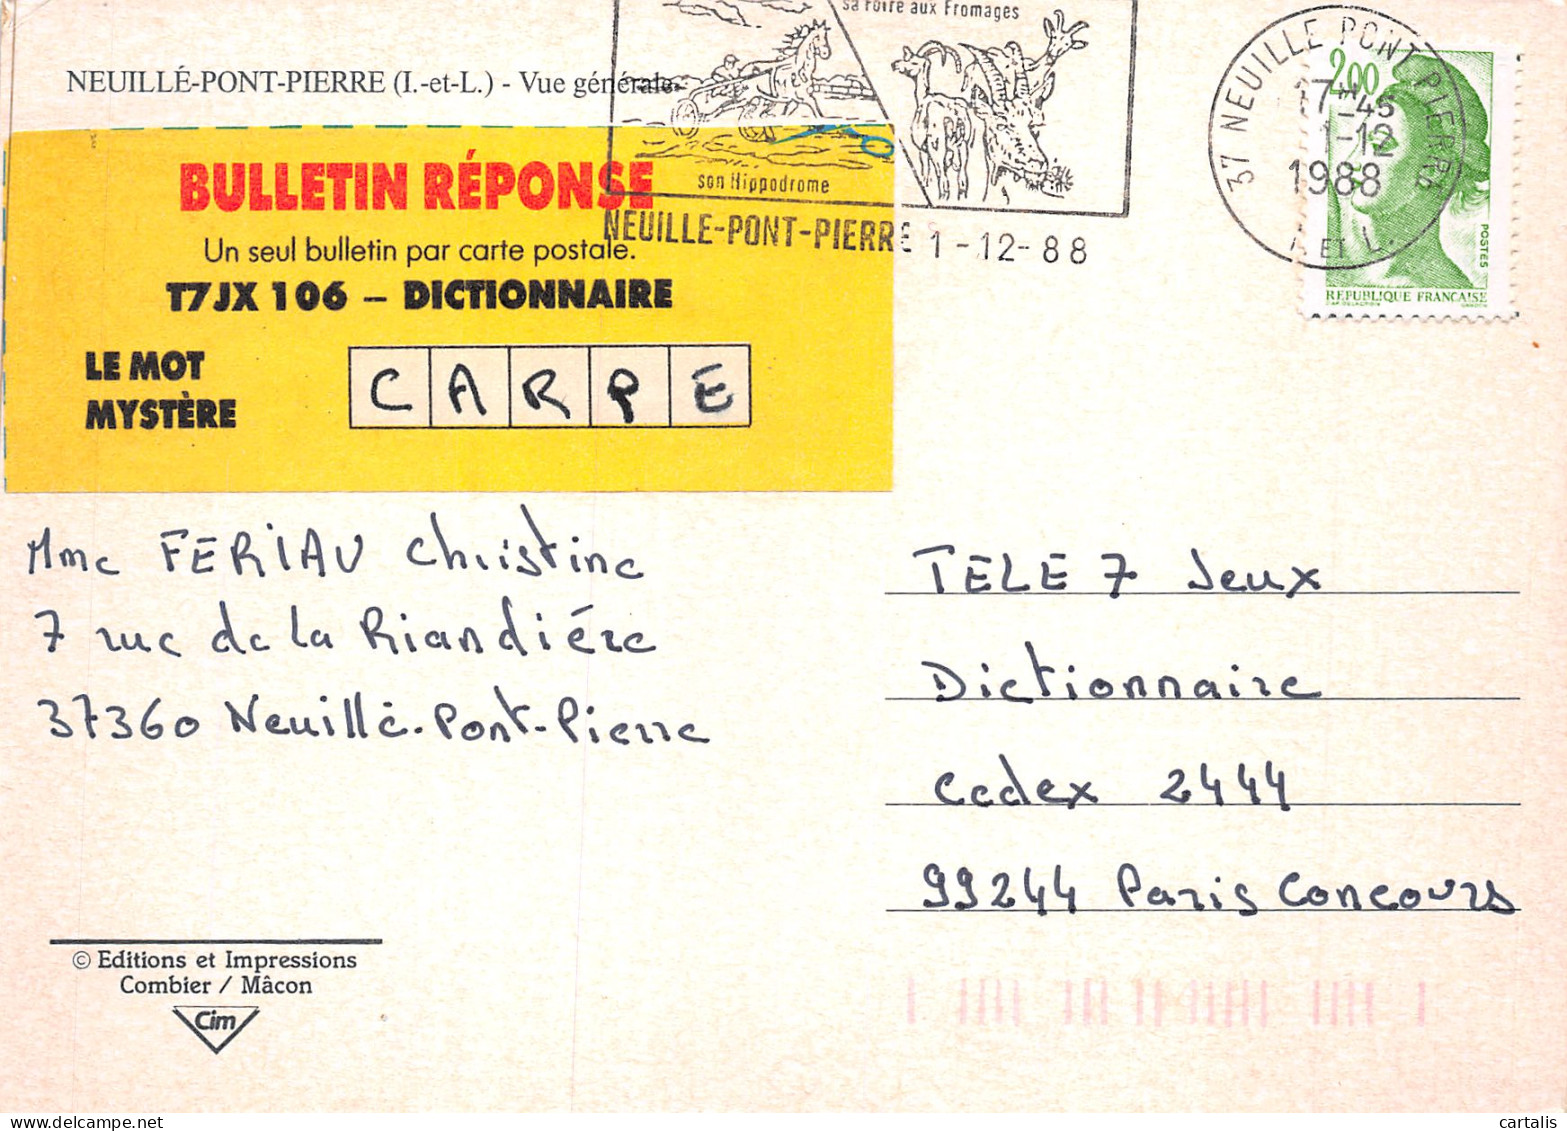 sa Foire aux Fromages
NEUILLÉ-PONT-PIERRE (I.-et-L.) - Vue générale
son Hippodrome
NEUILLE-PONT-PIERRE 1-12-88
37 NEUILLE PONT PIERRE
17H45
1-12
1988
I. ET L.
2,00
POSTES
REPUBLIQUE FRANÇAISE
BULLETIN RÉPONSE
Un seul bulletin par carte postale.
T7JX 106 – DICTIONNAIRE
LE MOT
MYSTÈRE
CARPE
Mme FERIAU Christine
7 rue de la Riandiére
37360 Neuillé-Pont-Pierre
TELE 7 Jeux
Dictionnaire
Cedex 2444
99244 Paris Concours
© Editions et Impressions
Combier / Mâcon
Cim
cartalis